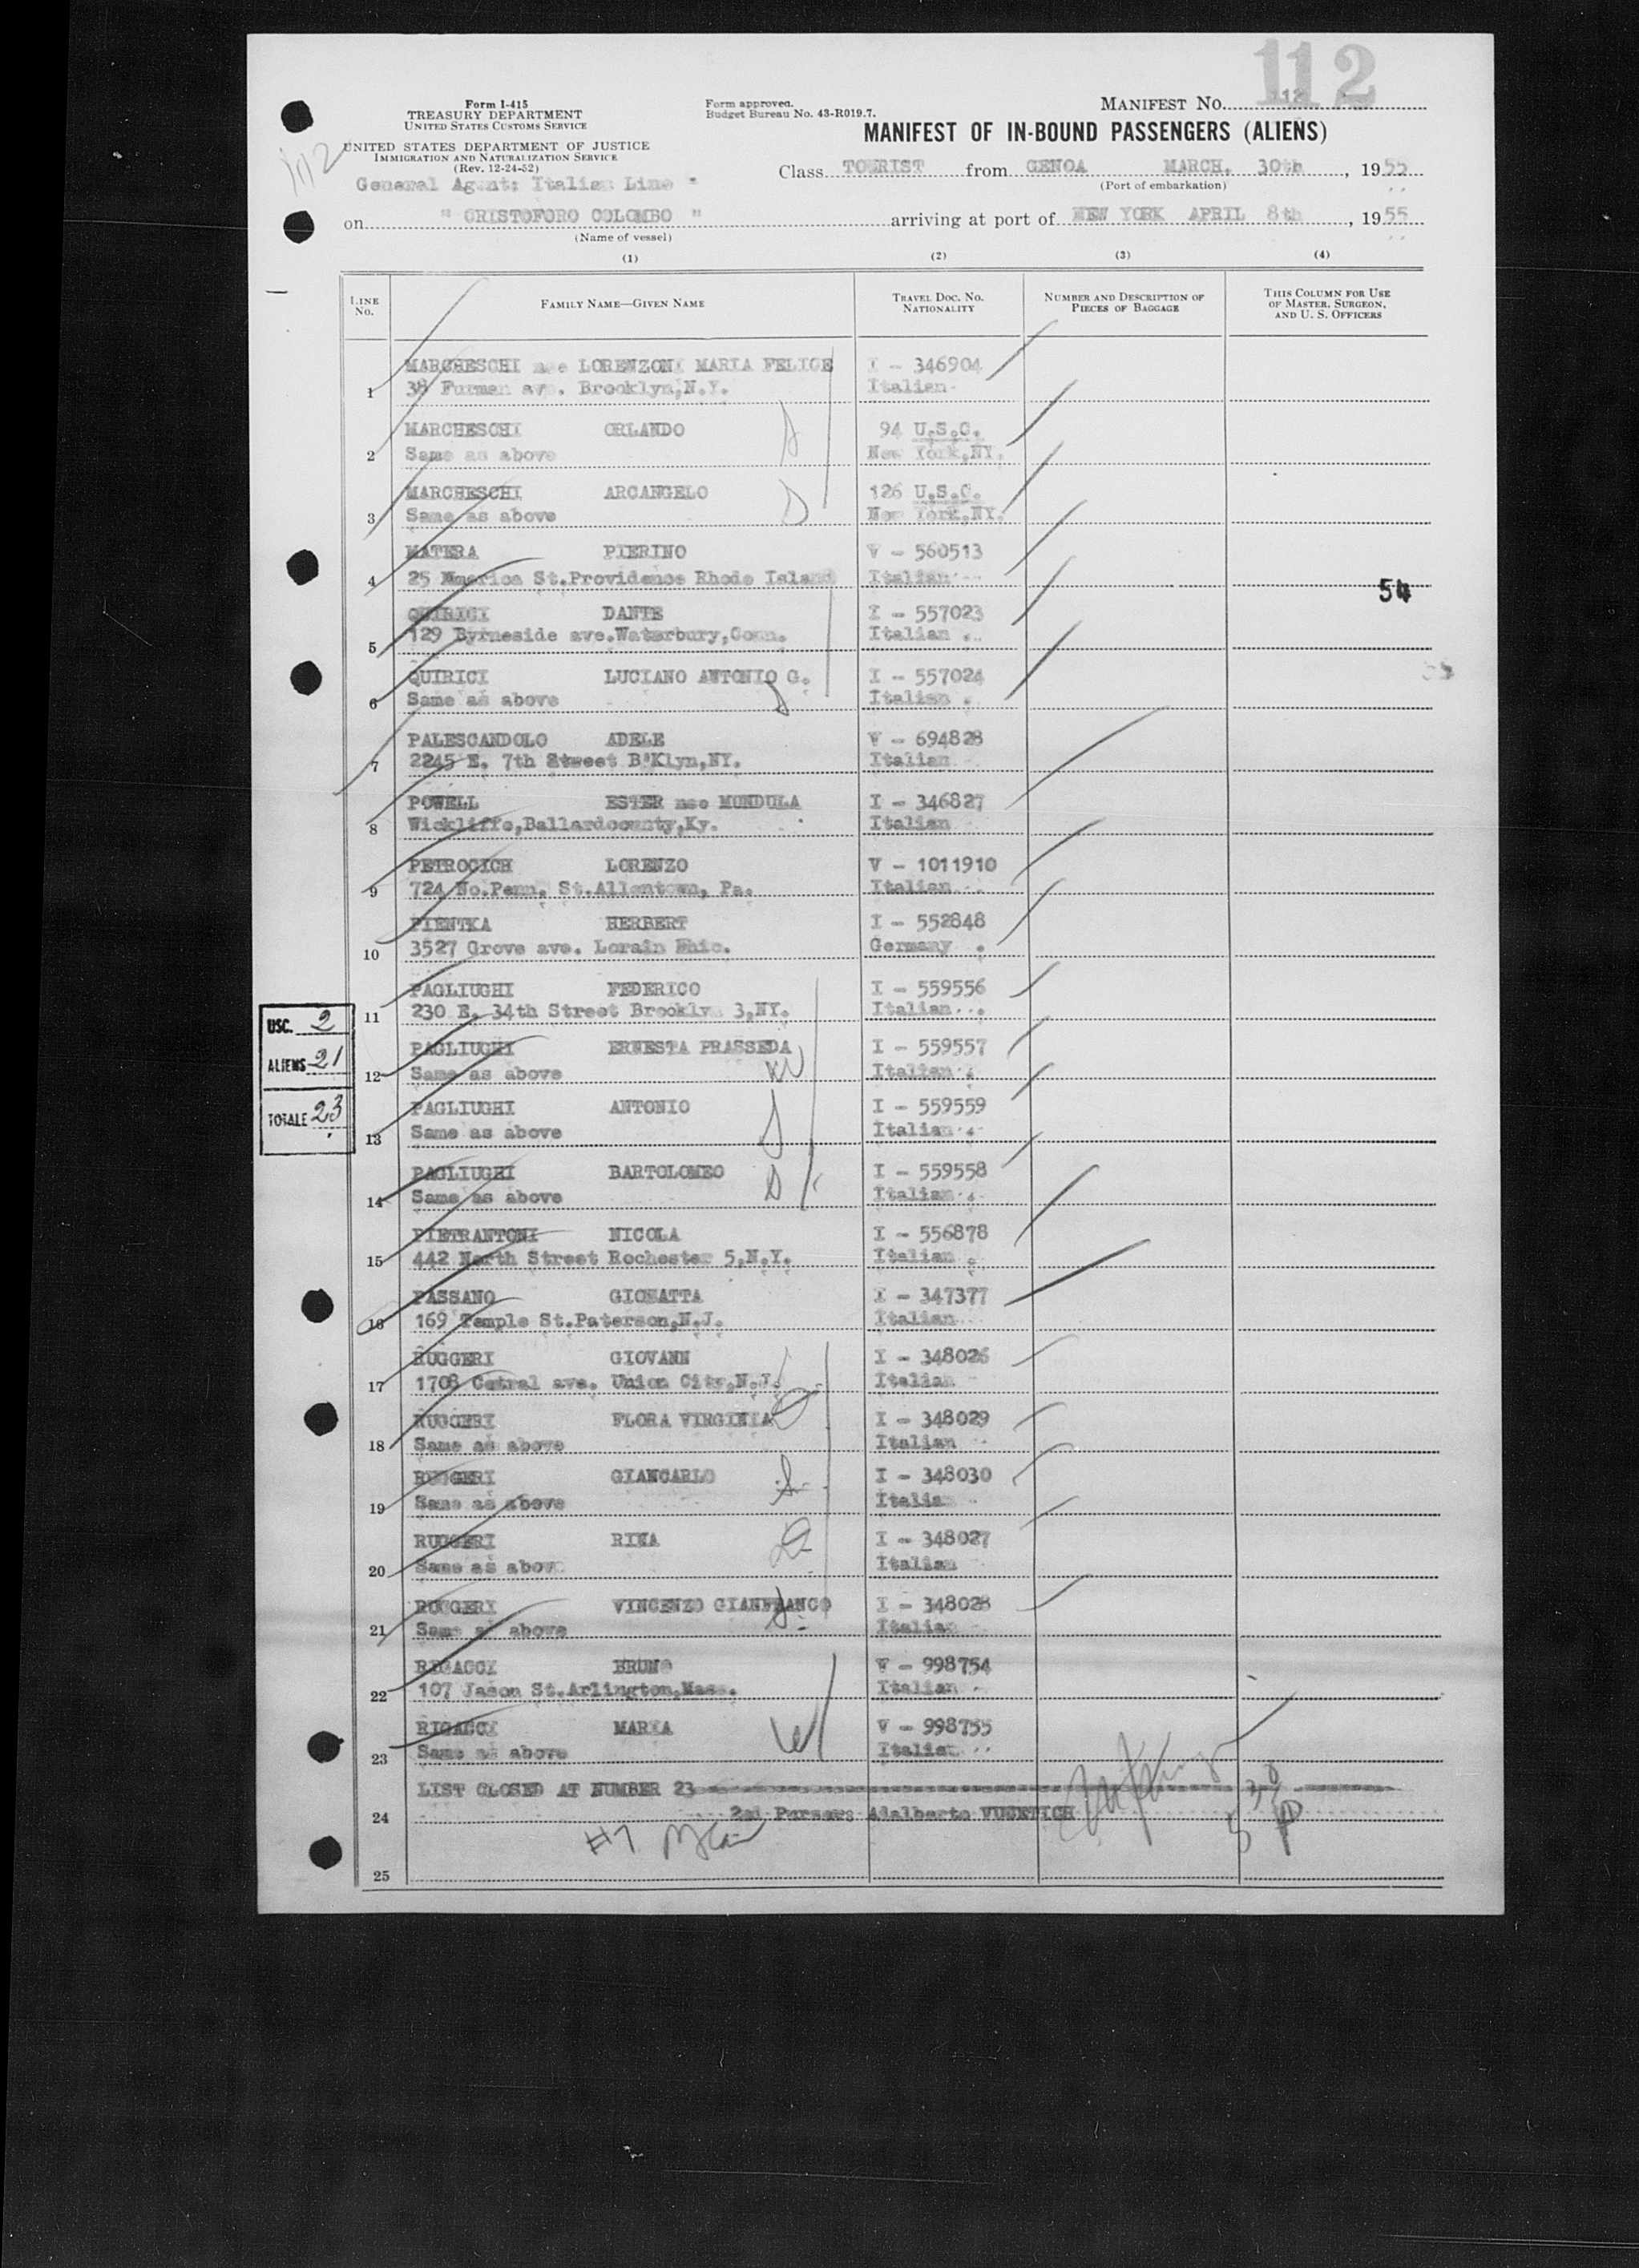 112
Form I-415
TREASURY DEPARTMENT
UNITED STATES CUSTOMS SERVICE
UNITED STATES DEPARTMENT OF JUSTICE
IMMIGRATION AND NATURALIZATION SERVICE
(Rev. 12-24-52)
General Agent: Italian Line "
Form approved.
Budget Bureau No. 43-R019.7.
MANIFEST NO. 112
MANIFEST OF IN-BOUND PASSENGERS (ALIENS)
Class TOURIST from GENOA MARCH, 30th, 1955
(Port of embarkation)
on " CRISTOFORO COLOMBO " arriving at port of NEW YORK APRIL 8th, 1955
(Name of vessel)
(1) (2) (3) (4)
LINE NO. FAMILY NAME—GIVEN NAME TRAVEL DOC. NO. NATIONALITY NUMBER AND DESCRIPTION OF PIECES OF BAGGAGE THIS COLUMN FOR USE OF MASTER, SURGEON, AND U. S. OFFICERS
MARCHESCHI nee LORENZONI MARIA FELICE I - 346904
1 38 Furman ave. Brooklyn,N.Y. Italian
MARCHESCHI ORLANDO 94 U.S.C.
2 Same as above New York,NY.
MARCHESCHI ARCANGELO 126 U.S.C.
3 Same as above New York,NY.
MATERA PIERINO V - 560513
4 25 America St.Providence Rhode Island Italian
54
QUIRICI DANTE I - 557023
5 129 Byrneside ave.Waterbury,Conn. Italian
QUIRICI LUCIANO ANTONIO G. I - 557024
6 Same as above Italian
PALESCANDOLO ADELE V - 694828
7 2245 E. 7th Stweet B'Klyn,NY. Italian
POWELL ESTER nee MUNDULA I - 346827
8 Wickliffe,Ballardcounty,Ky. Italian
PETROCICH LORENZO V - 1011910
9 724 No.Penn. St.Allentown, Pa. Italian
PIENTKA HERBERT I - 552848
10 3527 Grove ave. Lorain Germany
PAGLIUGHI FEDERICO I - 559556
11 230 E. 34th Street Brooklyn 3,NY. Italian
PAGLIUGHI ERNESTA PRASSEDA I - 559557
12 Same as above Italian
PAGLIUGHI ANTONIO I - 559559
13 Same as above Italian
PAGLIUGHI BARTOLOMEO I - 559558
14 Same as above Italian
USC. 2
ALIENS 21
TOTALE 23
PIETRANTONI NICOLA I - 556878
15 442 North Street Rochester 5,N.Y. Italian
PASSANO GIOBATTA I - 347377
16 169 Temple St.Paterson,N.J. Italian
RUGGERI GIOVANN I - 348026
17 1708 Cetral ave. Union City,N.J. Italian
RUGGERI FLORA VIRGINIA I - 348029
18 Same as above Italian
RUGGERI GIANCARLO I - 348030
19 Same as above Italian
RUGGERI RINA I - 348027
20 Same as above Italian
RUGGERI VINCENZO GIANFRANCO I - 348028
21 Same as above Italian
RIGACCI BRUNO V - 998754
22 107 Jason St.Arlington,Mass. Italian
RIGACCI MARIA V - 998755
23 Same as above Italian
LIST CLOSED AT NUMBER 23
24 2nd Purser: Adalberto VUCETICH
#7
25